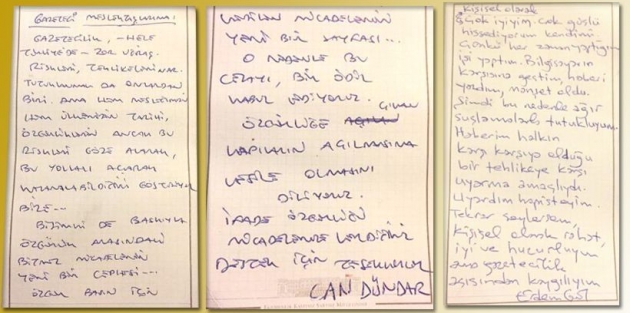 GAZETECİ MESLEKTAŞLARIMA:
GAZETECİLİK, -HELE
TÜRKİYE'DE- ZOR UĞRAŞ.
RİSKLERİ, TEHLİKELERİ VAR.
TUTUKLANMAK DA ONLARDAN
BİRİ. AMA HEM MESLEĞİMİN
HEM ÜLKEMİZİN TARİHİ,
ÖZGÜRLÜKLERİN ANCAK BU
RİSKLERİ GÖZE ALARAK,
BU YOLLARI AÇARAK
KAZANILABİLDİĞİNİ GÖSTERİYOR
BİZE...
BİZİMKİ DE BASKIYLA
ÖZGÜRLÜK ARASINDAKİ
BİTMEZ MÜCADELENİN
YENİ BİR CEPHESİ...
ÖZGÜR BASIN İÇİN
VERİLEN MÜCADELENİN
YENİ BİR SAYFASI...
O NEDENLE BU
CEZAYI, BİR ÖDÜL
KABUL EDİYORUZ.
ÖZGÜRLÜĞE ÇIKAN
KAPILARIN AÇILMASINA
VESİLE OLMASINI
DİLİYORUZ.
İFADE ÖZGÜRLÜĞÜ
MÜCADELEMİZE VERDİĞİNİZ
DESTEK İÇİN TEŞEKKÜRLER
CAN DÜNDAR
Kişisel olarak
çok iyiyim. Çok güçlü
hissediyorum kendimi.
Çünkü her zaman yaptığım
işi yaptım. Bilgisayarın
karşısına geçtim, haberi
yazdım, manşet oldu.
Şimdi bu nedenle ağır
suçlamalarla tutukluyum.
Haberim halkın
karşı karşıya olduğu
bir tehlikeye karşı
uyarma amaçlıydı.
Uyardım hapisteyim.
Tekrar söylersem,
kişisel olarak rahat,
iyi ve huzurluyum
ama gazetecilik
açısından kaygılıyım
Erdem Gül